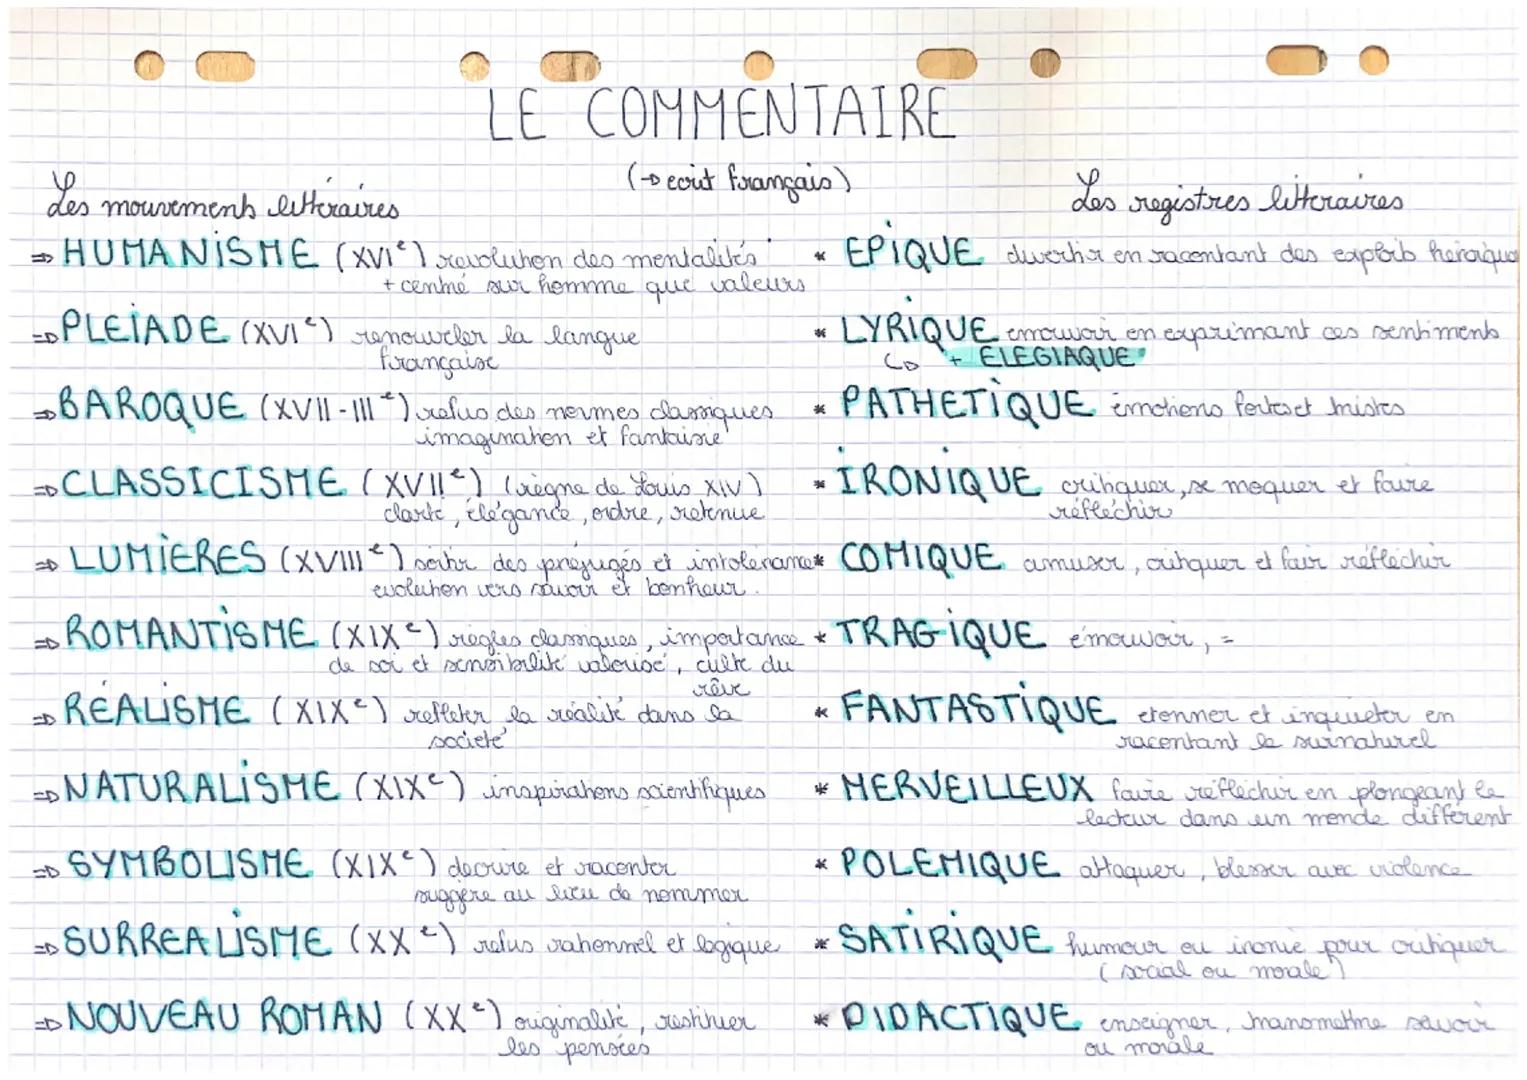 LE COMMENTAIRE
(→ ecrit français)
Les mouvements littéraires
⇒ HUMANISME (XVIe) revolution des mentalités
+ centré sur homme que valeurs
⇒ PLEIADE (XVIe) renouveler la langue
française
⇒ BAROQUE (XVII-IIIe) refus des normes classiques
imagination et fantaisie
⇒ CLASSICISME (XVIIe) (règne de Louis XIV)
clarté, élégance, ordre, retenue
⇒ LUMIERES (XVIIIe) sortir des préjugés et intolérance
evolution vers savoir et bonheur.
⇒ ROMANTISME (XIXe) règles classiques, importance
de soi et sensibilité valorisé, culte du
rêve
⇒ RÉALISME (XIXe) refleter la réalité dans la
societé
⇒ NATURALISME (XIXe) inspirations scientifiques
⇒ SYMBOLISME (XIXe) decrire et raconter
suggère au lieu de nommer
⇒ SURREALISME (XXe) refus rationnel et logique
⇒ NOUVEAU ROMAN (XXe) originalité, restituer
les pensées
Les registres litteraires
* EPIQUE divertir en racontant des exploits heroïque
* LYRIQUE emouvoir en exprimant ces sentiments
↳ + ELEGIAQUE
* PATHETIQUE émotions fortes et tristes
* IRONIQUE critiquer, se moquer et faire
réfléchir
* COMIQUE amuser, critiquer et fair réfléchir
* TRAGIQUE émouvoir, =
* FANTASTIQUE etonner et inquieter en
racontant le surnaturel
* MERVEILLEUX faire réfléchir en plongeant le
lecteur dans un monde différent
* POLEMIQUE attaquer, blesser avec violence
* SATIRIQUE humour ou ironie pour critiquer
(social ou morale)
* DIDACTIQUE enseigner, transmettre savoir
ou morale